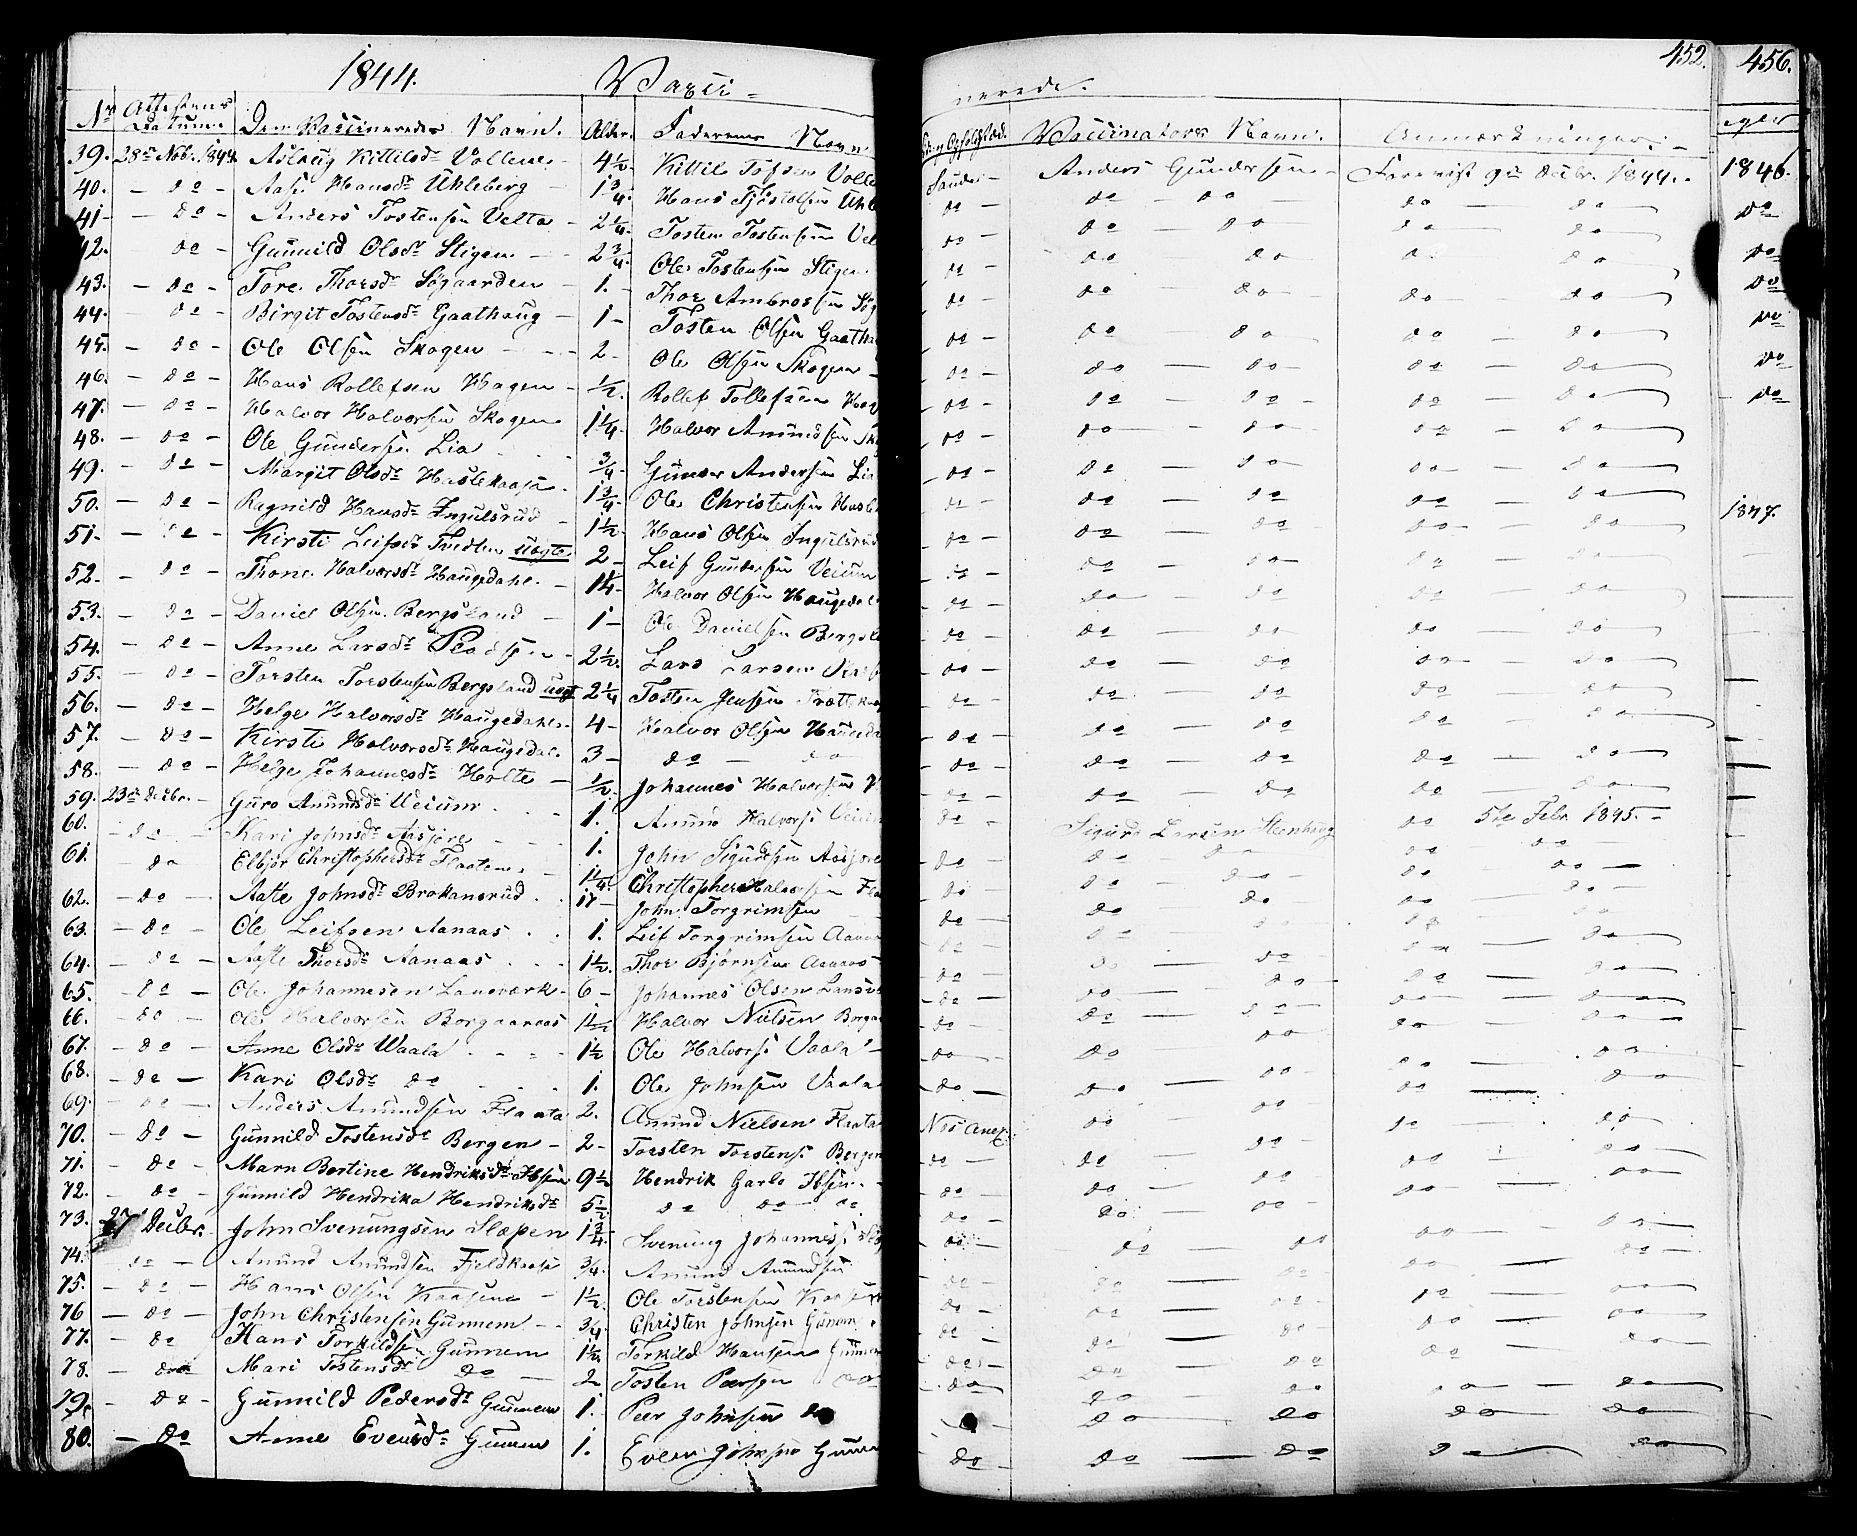 1844. Vacci-
nerede.
452. 456.
Nr Attestens Datum. Den Vaccineredes Navn. Alder. Faderens Navn Vaccinators Navn. Anmærkninger.
39. 28de Novbr. 1844 Aslaug Kittilsdr Vollene 4½ Kittil Tofsen Volle Saude Anders Gundersen Forevist 9de Decbr. 1844. 1846.
40. do Aase Hansdr Uhleberg 1¾ Hans do do do do do do
41 do Anders Tostensen Velta 2¼ Tosten Tostensen Vel do do do do do do
42. do Gunnild Olsdr Stigen 2¾ Ole Tostensen Stigen do do do do do do
43. do Tore Thorsdr Søgaarden 1. Thor Ambrossen Søg do do do do do
44. do Birgit Tostensdr Gaathaug 1 Tosten Olsen Gaatha do do do do do
45. do Ole Olsen Skogen 2 Ole Olsen Skogen do do do do do
46. do Hans Rollefsen Hagen ½. Rollef Tollefsen Hag do do do do do
47. do Halvor Halvorsen Skogen 1¼ Halvor Amundsen Sko do do do do do
48. do Ole Gundersen Lia ¾ Gunder Andersen Lia do do do do do
49. do Margit Olsdr Haslekaasa 1¾ Ole Christensen Hasle do do do do do
50. do Ragnild Hansdr Ingulsrud 1½ Hans Olsen Ingulsrud do do do do do 1847.
51. do Kirsti Leifsdr Tvedten uægte 2 Leif Gundersen Veium do do do do do
52. do Thone Halvorsdr Haugedahl 1¼ Halvor Olsen Haugedal do do do do do
53. do Daniel Olsen Bergsland 1 Ole Danielsen Bergsl do do do do do
54. do Anne Larsdr 2½. Lars Larsen do do do do do
55. do Torsten Torstensen Bergsland uægt 2¼ Tosten Jensen do do do do do
56. do Helge Halvorsdr Haugedahl 4 Halvor Olsen Haueda do do do do do
57. do Kirsti Halvorsdr Haugedal 3 do do do do do do do
58. do Helge Johannesdr Holte ½. Johannes Halvorsen do do do do do
59. 23de Decbr. Guro Amundsdr Veium 1. Amund Halvors Veium do Sigurd Larsen Steenhaug do 5te Febr. 1845.
60. do Kari Johnsdr Aasjore 1. John Sigurdsen Aasjore do do do do do
61. do Elbjør Christophersdr Flaaten 1¼. Christopher Halvorsen Fla do do do do do
62. do Aaste Johnsdr Brokansrud 17 John Torgrimsen do do do do do
63. do Ole Leifsen Aanaas 1. Leif Torgrimsen Aanaas do do do do do
64. do Aaste Thorsdr Aanaas 1½. Thor Bjørnsen Aanaas do do do do do
65. do Ole Johannesen Lansværk 6 Johannes Olsen Lansv do do do do do
66. do Ole Halvorsen Borgaanaas 1½ Halvor Nielsen Borga do do do do do
67. do Anne Olsdr Waala 1½ Ole Halvors Vaala do do do do do
68. do Kari Olsdr do 1. Ole Johnsen Vaala do do do do do
69. do Anders Amundsen Flaata 2. Amund Nielsen Flaata Nes Anex do do do do
70. do Gunnild Tostensdr Bergen 2 Torsten Torstens Bergen do do do do do
71. do Marn Bertine Hendriksdr Ibsen 9½ Hendrik Garlo Ibsen do do do do do
72. do Gunnild Hendrika Hendriksdr 5½ do do do do do do do do
73. 27 Decbr. John Svenungsen Slæpen 1¾ Svenung Johannes do do do do do
74. do Amund Amundsen Fjeldkaasa ¾. Amund Amundsen do do do do do
75. do Hans Olsen Kaasene 1½. Ole Torstensen Kaasene do do do do do
76 do John Christensen Gunnem ¾ Christen Johnsen Gunnem do do do do do
77. do Hans Torkildsen Gunnem 1½ Torkild Hansen Gunnem do do do do do
78. do Mari Tostensdr do 2 Tosten Peersen do do do do do do
79. do Gunnild Pedersdr Gunnem 1. Peer Johnsen do do do do do
80. do Anne Evensdr Gunnem 1. Even Johnsen Gunnem do do do do do